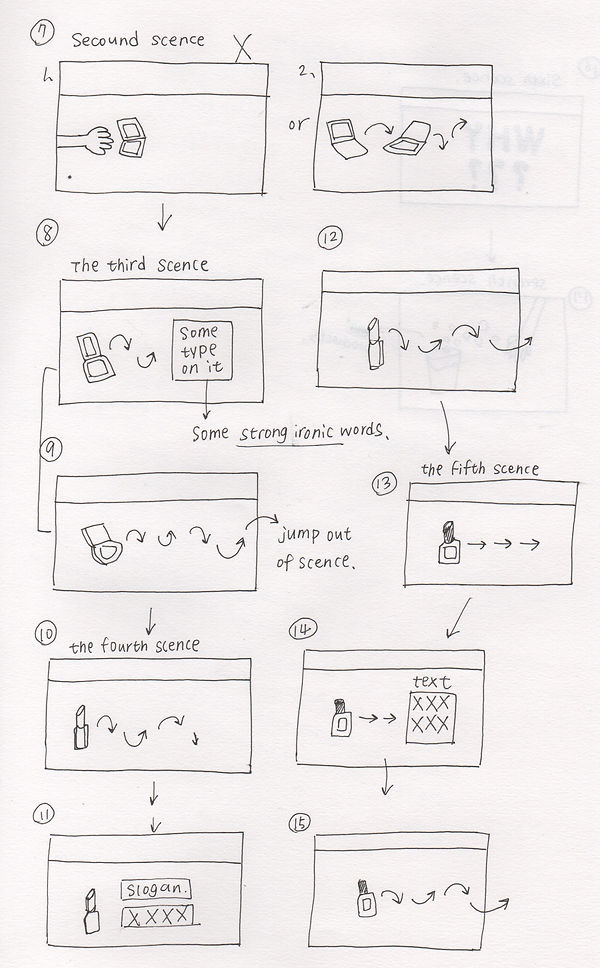 7 Secound scence X
1、
2、
or
8
The third scence
Some
type
on it
Some strong ironic words.
9
jump out
of scence.
10
the fourth scence
11
Slogan.
XXXX
12
13
the fifth scence
14
text
XXX
XXX
15